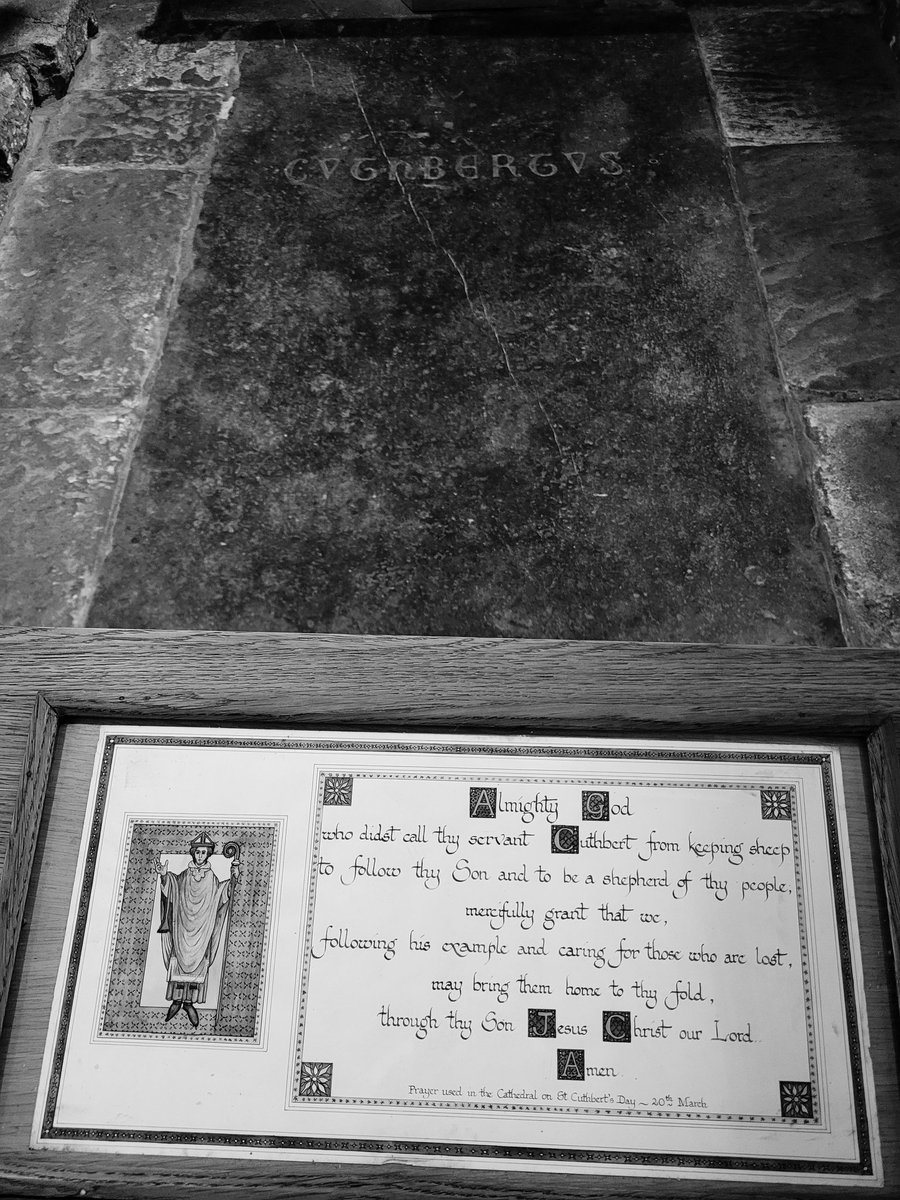 CUTHBERTUS
Almighty God
who didst call thy servant Cuthbert from keeping sheep
to follow thy Son and to be a shepherd of thy people,
mercifully grant that we,
following his example and caring for those who are lost,
may bring them home to thy fold,
through thy Son Jesus Christ our Lord
Amen
Prayer used in the Cathedral on St Cuthbert's Day ~ 20th March